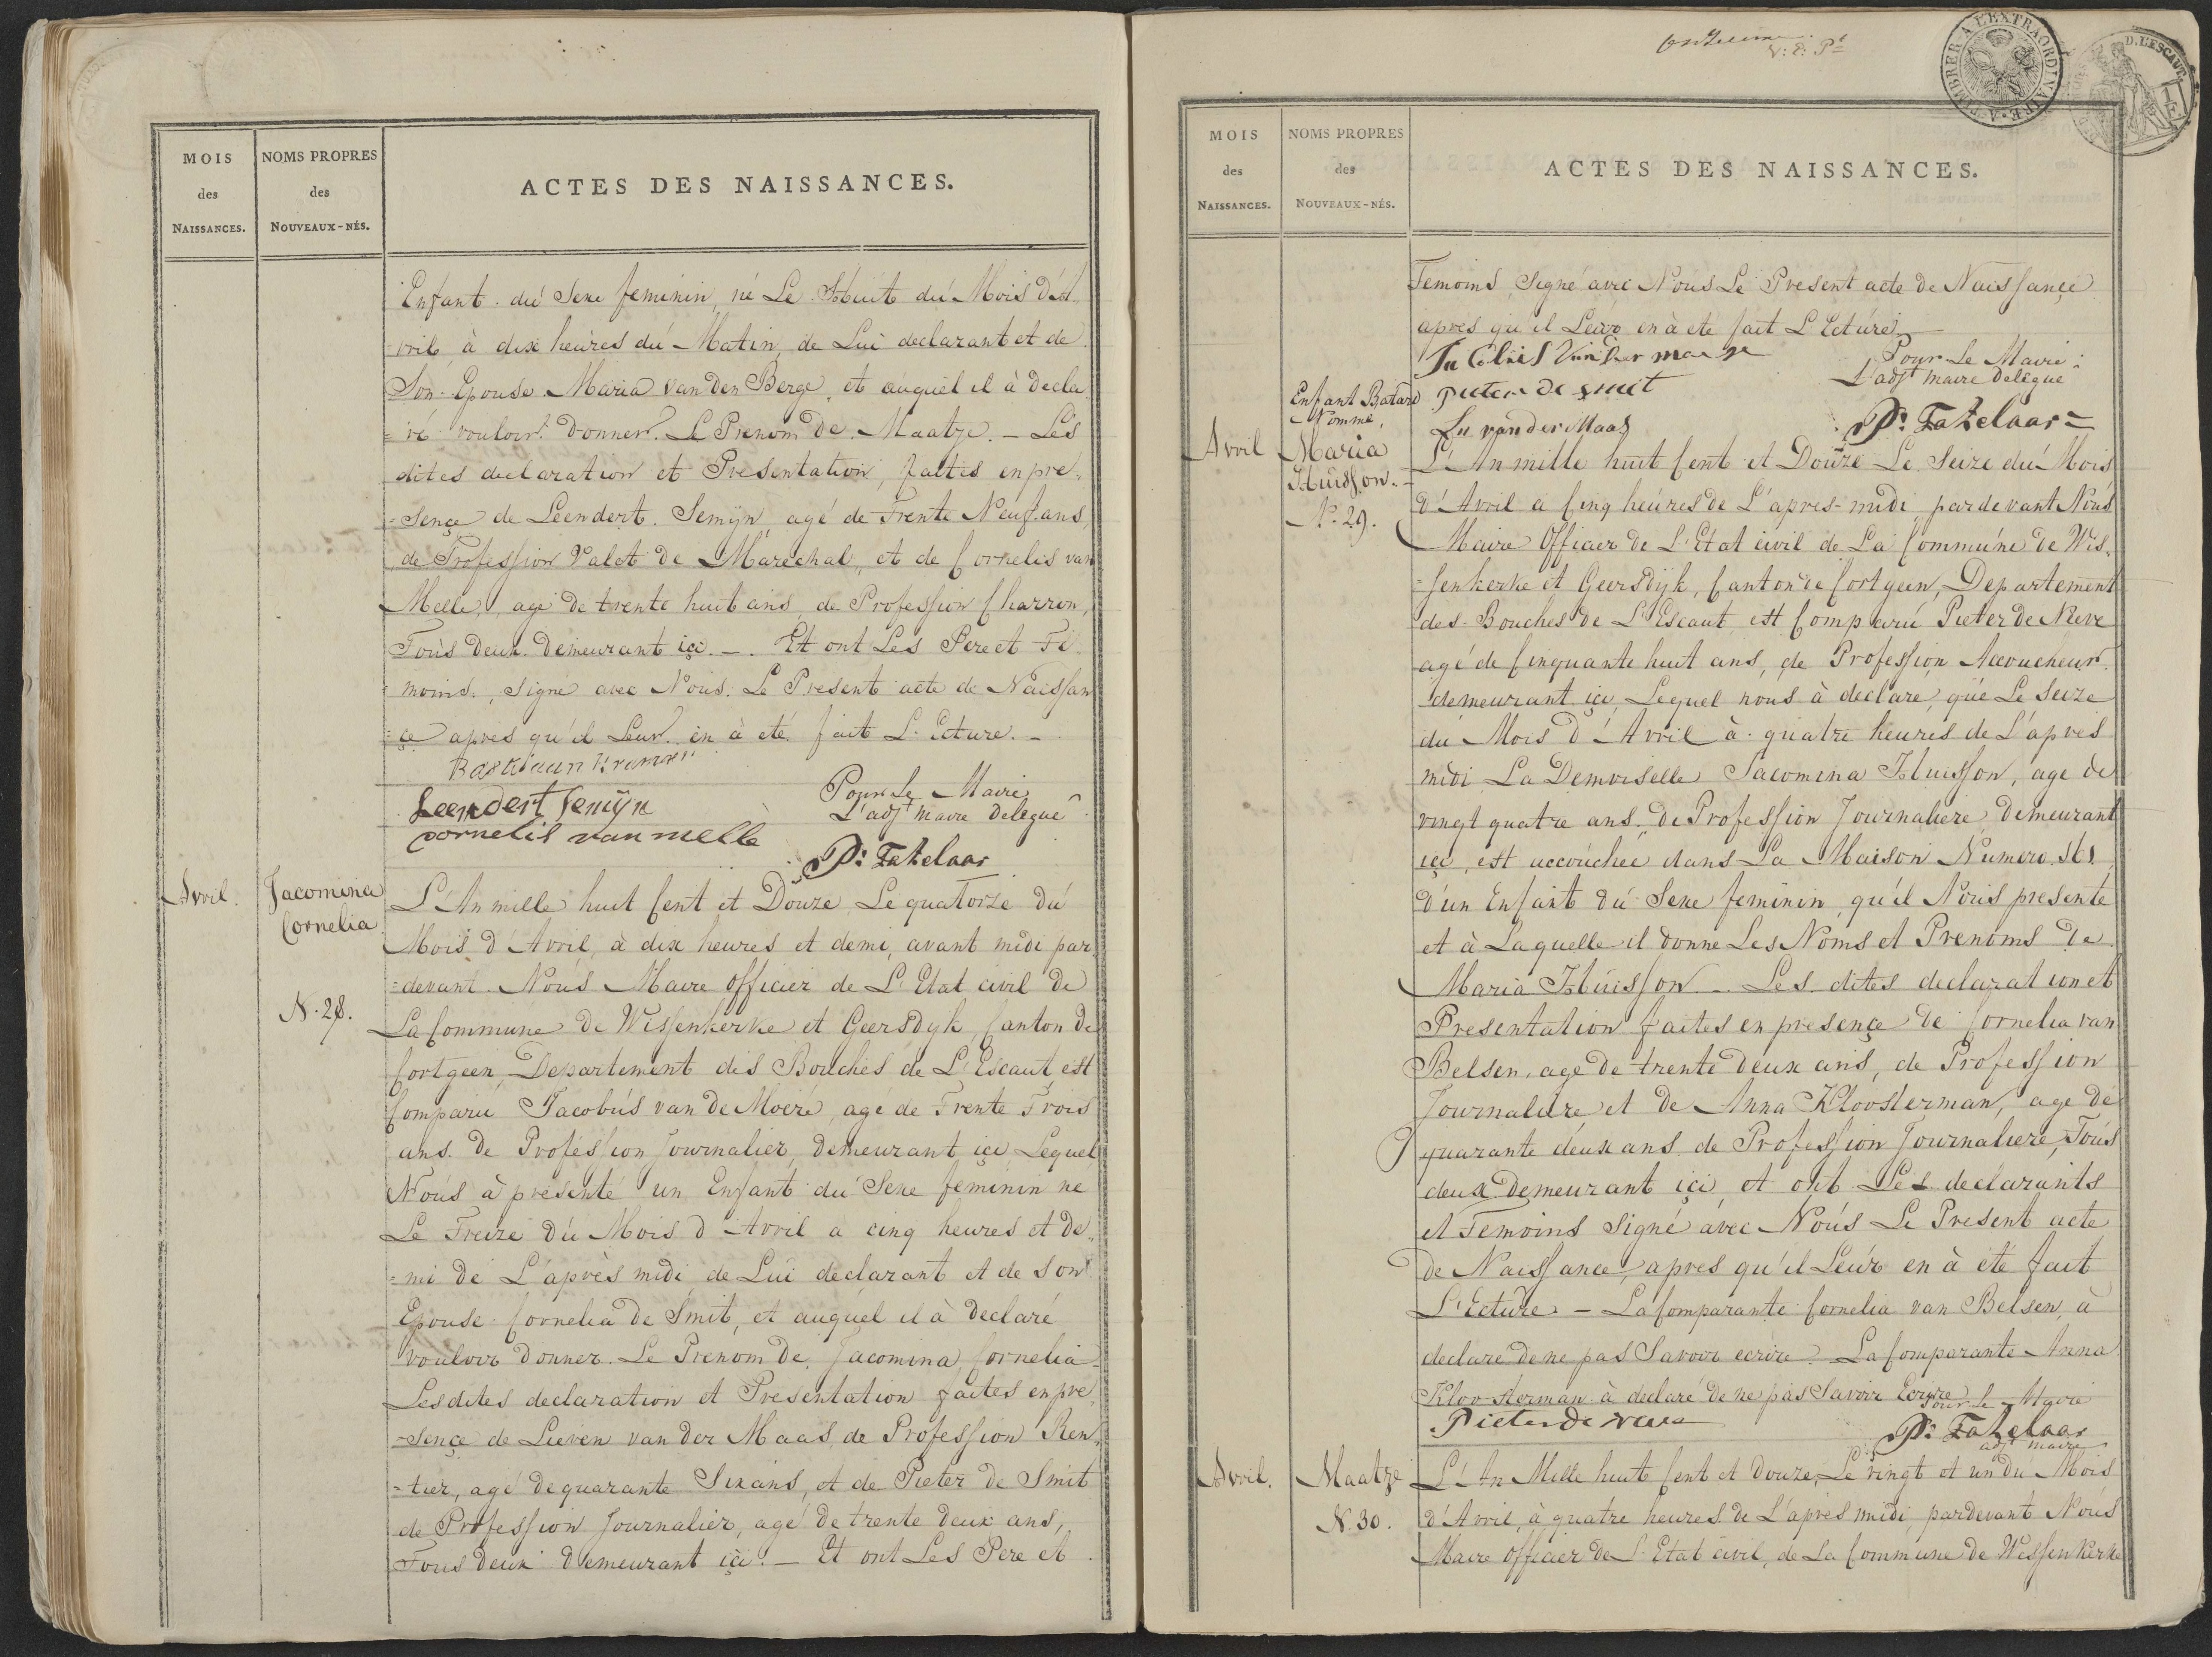 MOIS
des
NAISSANCES.
NOMS PROPRES
des
NOUVEAUX-NÉS.
ACTES DES NAISSANCES.
Enfant du Sexe feminin, né Le Huit du Mois d'A
=vril à dix heures du Matin, de Lui declarant et de
Son Epouse Maria van den Berge, et auquel il à decla
=ré vouloir donner Le Prenom de Maatje. — Les
dites declaration et Presentation, faites en pré=
=sençe de Leendert Semijn, agé de Trente Neuf ans,
de Profession Valet de Maréchal, et de Cornelis van
Melle, agé de trente huit ans, de Profession Charron,
Tous deux demeurant içi. — Et ont Les Pere et Té
=moins, signé avec Nous Le Present acte de Naissan
=çe apres qu'il Leur en à été fait L'Ecture. —
Bastiaan
Leendert Semijn
cornelis van melle
Pour Le Maire
L'adjt maire delegué
P: Fatelaar
Avril.
Jacomina
Cornelia
N. 28.
L'An mille huit Cent et Douze, Le quatorze du
Mois d'Avril, à dix heures et demi, avant midi par
=devant Nous Maire Officier de L'Etat civil de
La Commune de Wissenkerke et Geersdyk, Canton de
Cortgeen, Departement des Bouches de L'Escaut, est
Comparu Jacobus van de Moere, agé de Trente Trois
ans de Profession Journalier, demeurant içi Lequel
Nous à présenté un Enfant du Sexe feminin né
Le Treize du Mois d'Avril a cinq heures et de=
=mi de L'après midi de Lui declarant et de son
Epouse Cornelia de Smit, et auquel il à declaré
vouloir donner Le Prenom de Jacomina Cornelia
Les dites declaration et Presentation faites en pre
=sençe de Lieven van der Maas de Profession Ren
=tier, agé de quarante Six ans, et de Pieter de Smit
de Profession Journalier, agé de trente deux ans,
Tous deux demeurant içi. — Et ont Les Pere et
V: d: Pt
A TIMBRER A L'EXTRAORDINAIRE
D. L'ESCAUT
MOIS
des
NAISSANCES.
NOMS PROPRES
des
NOUVEAUX-NÉS.
ACTES DES NAISSANCES.
Temoins Signé avec Nous Le Present acte de Naissançe
apres qu'il Leur en à été fait L'Ecture
Pour Le Maire
pieter de smit
L'adjt maire delegué
Ln van der Maas
P: Fatelaar =
Avril
Enfant Batard
Nommé,
Maria
Huisson. —
No. 29.
L'An mille huit Cent et Douze Le Seize du Mois
d'Avril à Cinq heures de L'apres-midi, pardevant Nous
Maire Officier de L'Etat civil de La Commune de Wis=
=senkerke et Geersdyk, Canton de Cortgeen, Departement
des Bouches de L'Escaut est Comparu Pieter de Neve
agé de Cinquante huit ans, de Profession Accoucheur
demeurant içi, Lequel nous à declaré, que Le Seize
du Mois d'Avril à quatre heures de L'apres
midi La Demoiselle Jacomina Huisson, agé de
vingt quatre ans, de Profession Journaliere demeurant
içi, est accouchée dans La Maison Numero 161
d'un Enfant du Sexe feminin, qu'il Nous presente
et à Laquelle il donne Les Noms et Prenoms de
Maria Huisson. — Les dites declaration et
Presentation faites en presençe de Cornelia van
Belsen, agé de trente deux ans, de Profession
Journaliere, et de Anna Kloosterman, agé de
quarante deux ans de Profession Journaliere, Tous
deux demeurant içi, et ont Les declarants
et Temoins Signé avec Nous Le Present acte
de Naissance, apres qu'il Leur en à été fait
L'Ecture — La Comparante Cornelia van Belsen, à
declaré de ne pas Savoir ecrire. La Comparante Anna
Kloosterman à declaré de ne pas Savoir Ecrire
Pour Le Maire
Pieter de neve
P: Fatelaar
adjt maire
Avril.
Maatje
N. 30.
L'An Mille huit Cent et Douze, Le vingt et un du Mois
d'Avril, à quatre heures de L'apres midi, pardevant Nous
Maire Officier de L'Etat civil, de La Commune de Wissenkerke